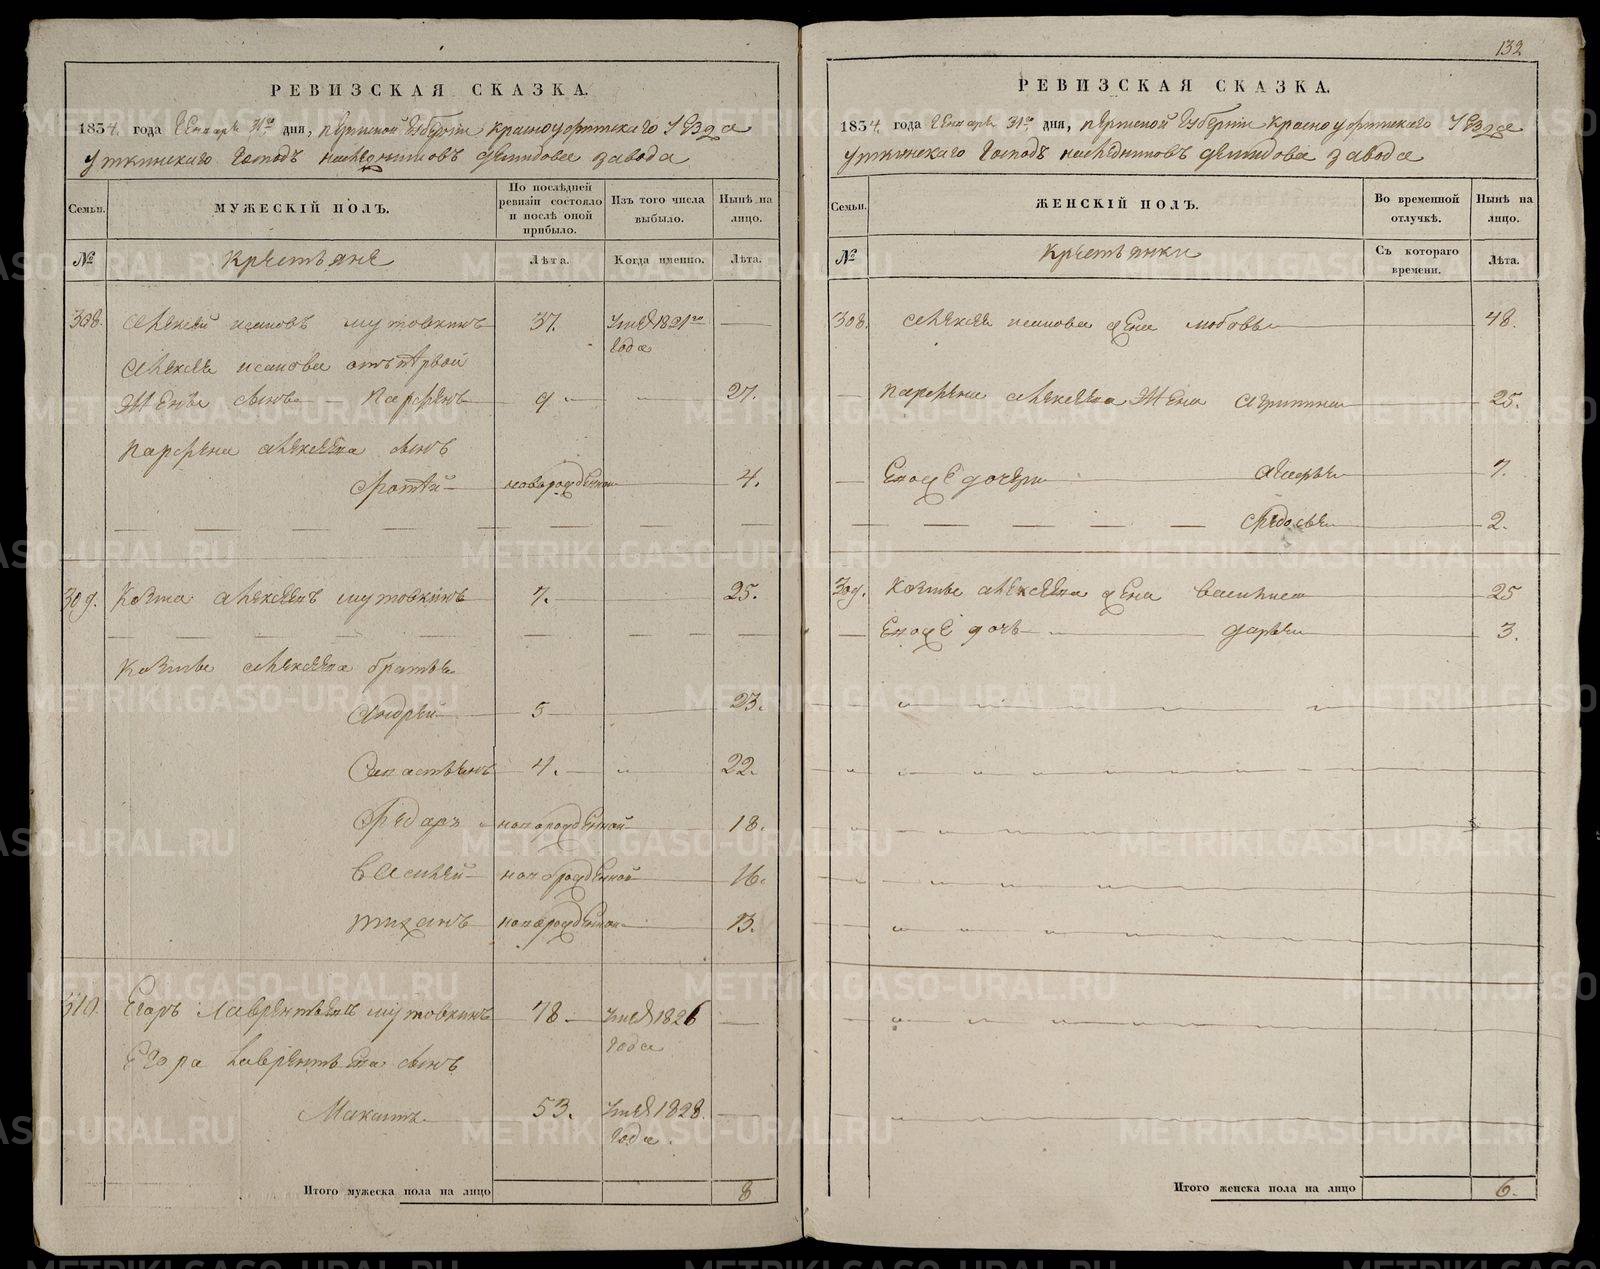 132
РЕВИЗСКАЯ СКАЗКА.
1834. года Генваря 31го дня, Пермской Губернiи Красноуфимскаго Уезда
Уткинскаго Господъ наследниковъ Демидова завода
Семьи.
МУЖЕСКІЙ ПОЛЪ.
По послѣдней ревизіи состояло и послѣ оной прибыло.
Изъ того числа выбыло.
Нынѣ на лицо.
№
Крестьяне
Лѣта.
Когда именно.
Лѣта.
308. Алексей Исаковъ Шутовкинъ 37. Умер 1821го года
Алексея Исакова отъ первой
жены сынъ Парфенъ 9 27.
Парфена Алексеева сынъ
Фотей новорожденной 4.
309. Козма Алексеевъ Шутовкинъ 7. 25.
Козмы Алексеева братья
Андрей 5 23.
Савастьянъ 4. 22.
Федаръ новорожденной 18.
Василей новорожденной 16.
Тиханъ новорожденной 13.
310. Егоръ Лаврентьевъ Шутовкинъ 78 Умер 1826 года
Егора Лаврентьева сынъ
Макаръ 53. Умер 1828. года.
Итого мужеска пола на лицо 8
РЕВИЗСКАЯ СКАЗКА.
1834. года Генваря 31го дня, Пермской Губернiи Красноуфимскаго Уезда
Уткинскаго Господъ наследниковъ Демидова завода
Семьи.
ЖЕНСКІЙ ПОЛЪ.
Во временной отлучкѣ.
Нынѣ на лицо.
№
Крестьянки
Съ котораго времени.
Лѣта.
308. Алексея Исакова жена Любовь 48.
Парфена Алексеева жена Агрипина 25.
Ево же дочери 7.
Федосья 2.
309. Козмы Алексеева жена Василиса 25
Ево же дочь Дарья 3.
Итого женска пола на лицо 6.
METRIKI.GASO-URAL.RU